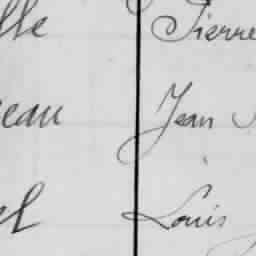 lle Pierre
eau Jean
el Louis